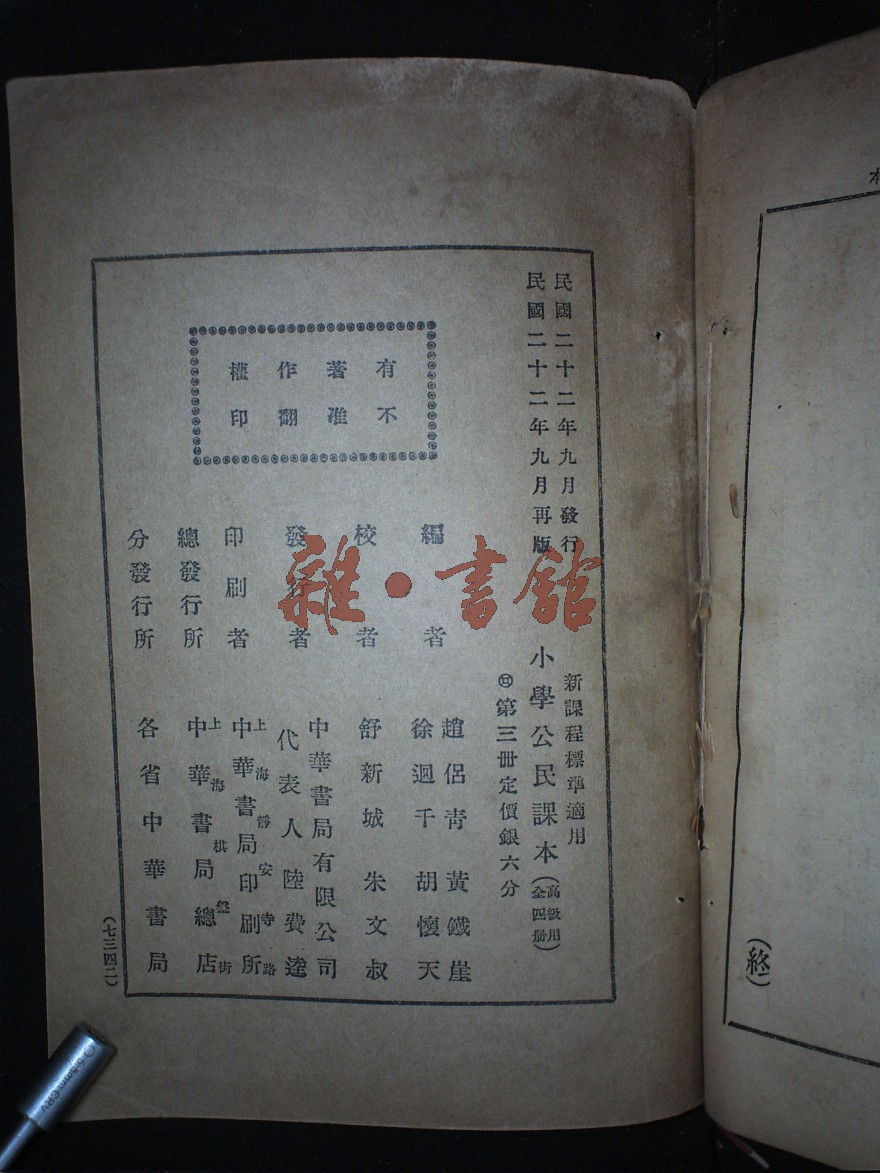 民國二十二年九月發行
民國二十二年九月再版
新課程標準適用
小學公民課本(高級用全四册)
第三册定價銀六分
有著作權
不准翻印
編者
趙侶青 黃鐵崖
徐迥千 胡懷天
校者
舒新城 朱文叔
發行者
中華書局有限公司
代表人陸費逵
印刷者
上海靜安寺路
中華書局印刷所
總發行所
上海棋盤街
中華書局總店
分發行所
各省中華書局
(七三四二)
雜·書館
本
(終)
0.5mm CRV